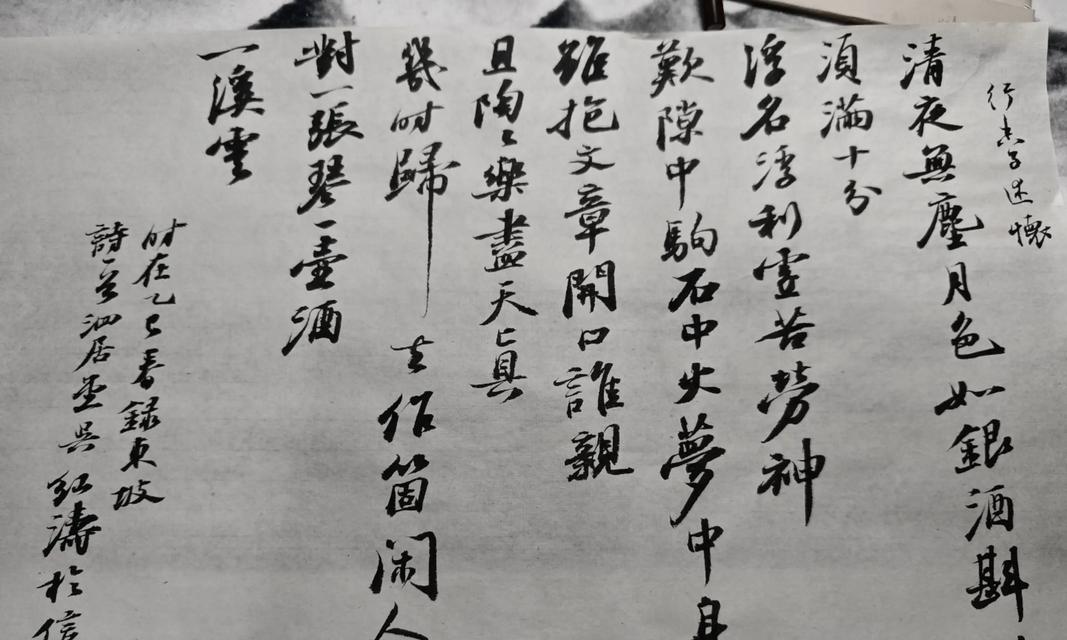 行香子述懷
清夜無塵月色如銀酒斟
須滿十分
浮名浮利虛苦勞神
歎隙中駒石中火夢中身
雖抱文章開口誰親
且陶陶樂盡天真
幾时歸去作箇闲人
對一張琴一壺酒
一溪雲
时在乙巳春録東坡
詩一首泗居堂吳紅濤於信